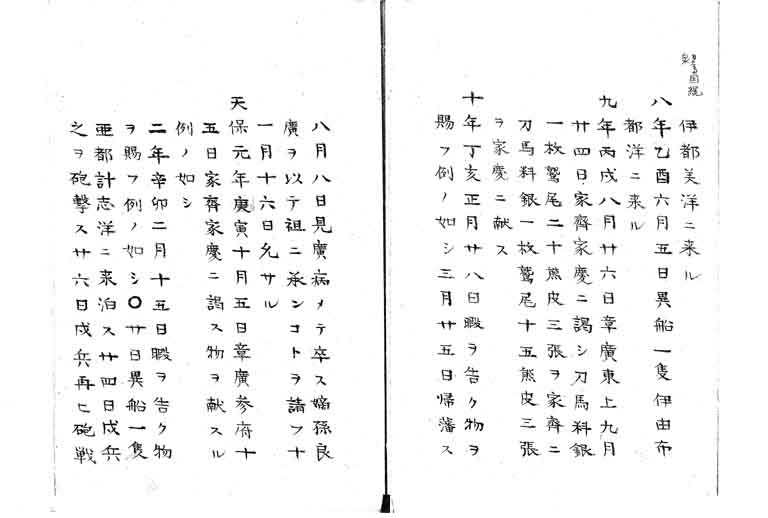 伊都美洋ニ来ル
八年乙酉六月五日異船一隻伊由布
都洋ニ来ル
九年丙戌八月廿六日章廣東上九月
廿四日家齊家慶ニ謁シ刀馬料銀
一枚鷲尾二十熊皮三張ヲ家齊ニ
刀馬料銀一枚鷲尾十五熊皮三張
ヲ家慶ニ献ス
十年丁亥正月廿八日暇ヲ告ク物ヲ
賜フ例ノ如シ三月廿五日帰藩ス
八月八日見廣病メテ卒ス嫡孫良
廣ヲ以テ祖ニ承ンコトヲ請フ十
一月十六日允サル
天保元年庚寅十月五日章廣参府十
五日家齊家慶ニ謁ス物ヲ献スル
例ノ如シ
二年辛卯二月十五日暇ヲ告ク物
ヲ賜フ例ノ如シ〇廿日異船一隻
亜都計志洋ニ来泊ス廿四日戍兵
之ヲ砲撃ス廿六日戍兵再ヒ砲戦